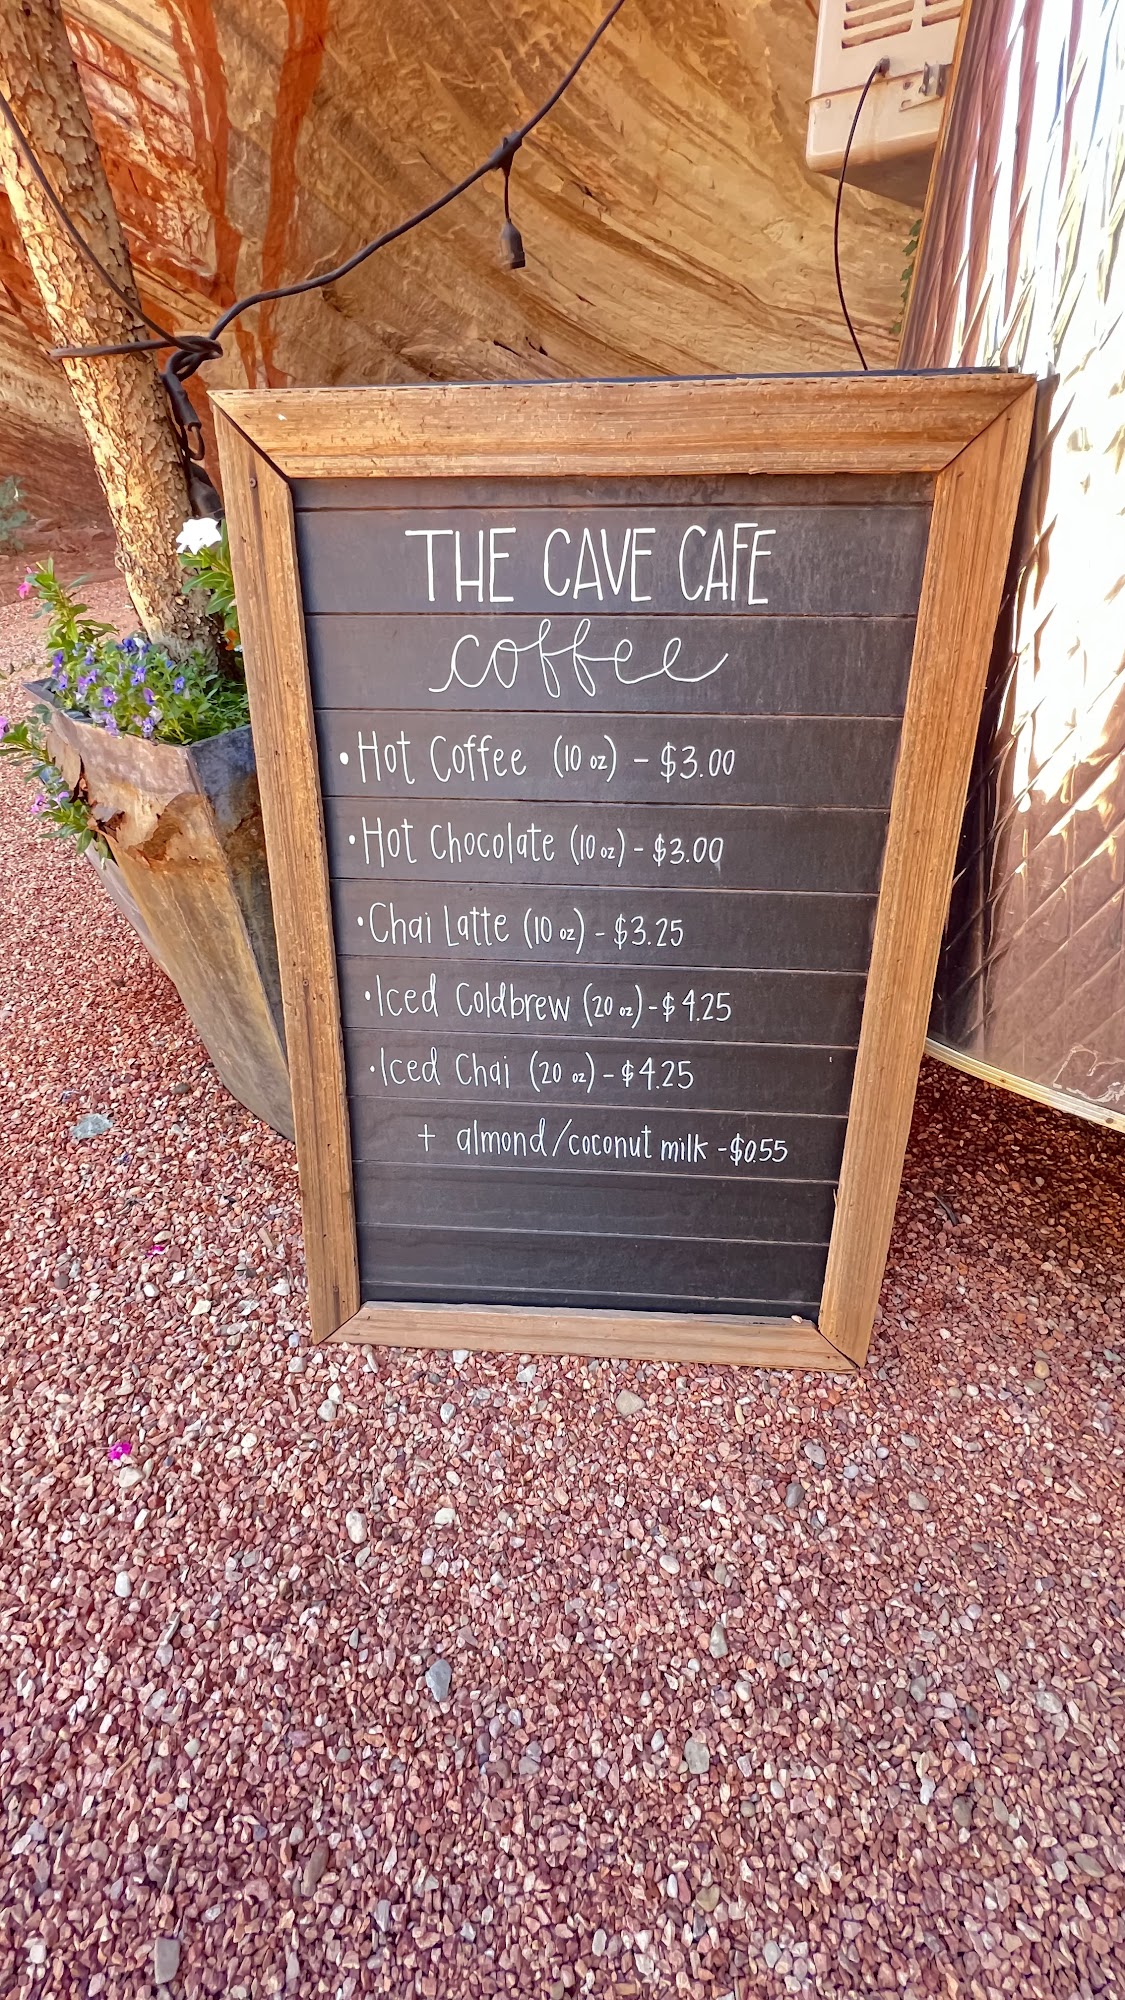 THE CAVE CAFE
coffee
• Hot Coffee (10 oz) - $3.00
• Hot Chocolate (10 oz) - $3.00
• Chai Latte (10 oz) - $3.25
• Iced Coldbrew (20 oz) - $4.25
• Iced Chai (20 oz) - $4.25
+ almond/coconut milk - $0.55